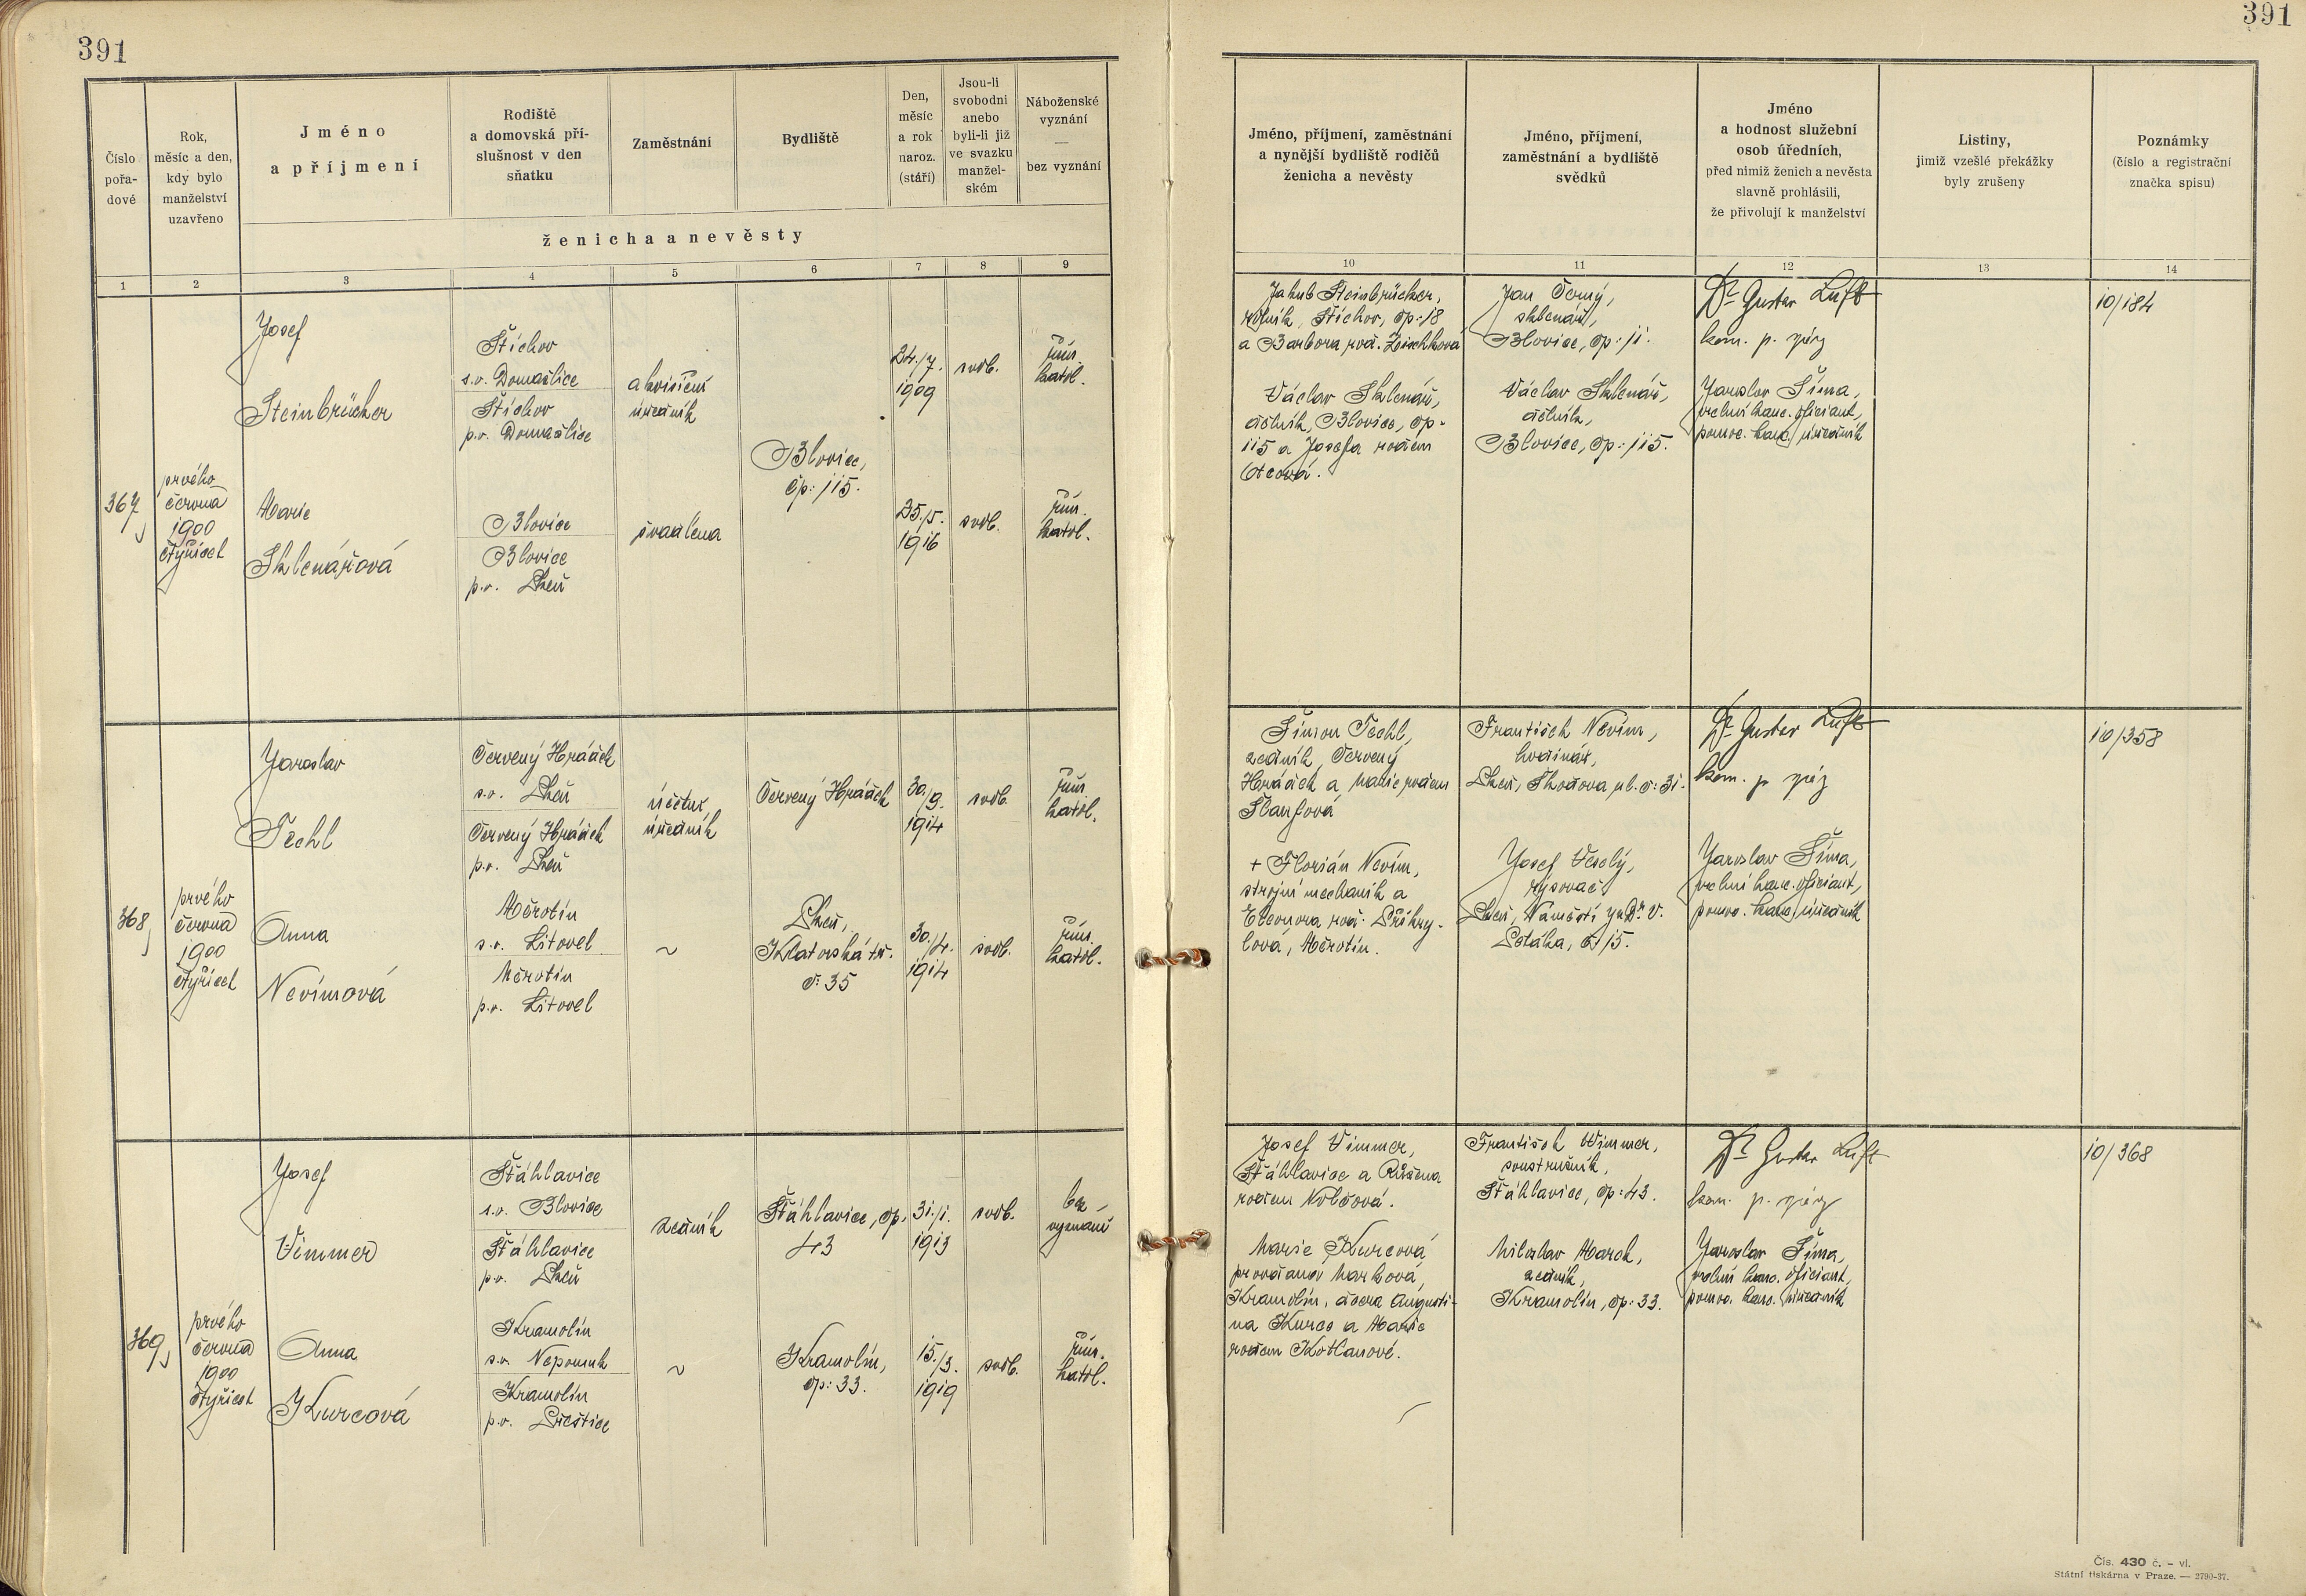 391
391
Číslo pořadové
Rok, měsíc a den, kdy bylo manželství uzavřeno
Jméno a příjmení
Rodiště a domovská příslušnost v den sňatku
Zaměstnání
Bydliště
Den, měsíc a rok naroz. (stáří)
Jsou-li svobodni anebo byli-li již ve svazku manželském
Náboženské vyznání — bez vyznání
ženicha a nevěsty
Jméno, příjmení, zaměstnání a nynější bydliště rodičů ženicha a nevěsty
Jméno, příjmení, zaměstnání a bydliště svědků
Jméno a hodnost služební osob úředních, před nimiž ženich a nevěsta slavně prohlásili, že přivolují k manželství
Listiny, jimiž vzešlé překážky byly zrušeny
Poznámky (číslo a registrační značka spisu)
1 2 3 4 5 6 7 8 9 10 11 12 13 14
367,
prvého
června
1900
čtyřicet
Josef
Steinbrücker
Štichov
s.o. Domažlice
Štichov
p.o. Domažlice
akvisiční
úředník
Blovice,
čp: 115.
24./7.
1909
svob.
řím.
katol.
Marie
Sklenářová
Blovice
Blovice
p.o. Plzeň
švadlena
25./5.
1916
svob.
řím.
katol.
Jakub Steinbrücker,
rolník, Štichov, čp: 18
a Barbora roz.
Václav Sklenář,
dělník, Blovice, čp.
115 a Josefa rozen
Otcová.
Jan Černý,
sklenář,
Blovice, čp: 11.
Václav Sklenář,
dělník,
Blovice, čp: 115.
Dr Gustav Luft
kom. p. správy
Jaroslav Šíma,
velmi kanc. oficiant,
pomoc. kanc. úředník
10/184
368,
prvého
června
1900
čtyřicet
Jaroslav
Techl
Červený Hrádek
s.o. Plzeň
Červený Hrádek
p.o. Plzeň
účetní
úředník
Červený Hrádek
30./9.
1914
svob.
řím.
katol.
Anna
Nevímová
Měrotín
s.o. Litovel
Měrotín
p.o. Litovel
~
Plzeň,
Klatovská tř.
č: 35
30./4.
1914
svob.
řím.
katol.
Šimon Techl,
zedník, Červený
Hrádek a Marie rozen
+ Florián Nevím,
strojní mechanik a
Eleonora roz. Přikry-
lová, Měrotín.
František Nevím,
hodinář,
Plzeň, Škodova ul. č: 31.
Josef Veselý,
rýsovač,
Plzeň, Náměstí Dr. V.
Petáka, č: 15.
Dr Gustav Luft
kom. p. správy
Jaroslav Šíma,
kanc. oficiant,
pomoc. kanc. úředník
10/358
369,
prvého
června
1900
čtyřicet
Josef
Vimmer
Šťáhlavice
s.o. Blovice
Šťáhlavice
p.o. Plzeň
zedník
Šťáhlavice, čp:
43
31./1.
1913
svob.
bez
vyznání
Anna
Kurcová
Kramolín
s.o. Nepomuk
Kramolín
p.o. Přeštice
~
Kramolín,
čp: 33.
15./3.
1919
svob.
řím.
katol.
Josef Vimmer,
Šťáhlavice a Růžena
rozen Volčová.
Marie Kurcová
provdaná Marková,
Kramolín, dcera Augusti-
na Kurce a Marie
rozen Kotlanové.
František Wimmer,
soustružník,
Šťáhlavice, čp: 43.
Miloslav Marek,
zedník,
Kramolín, čp: 33.
Dr Gustav Luft
kom. p. správy
Jaroslav Šíma,
kanc. oficiant,
pomoc. kanc. úředník
10/368
Čís. 430 č. – vl.
Státní tiskárna v Praze. — 2790-37.